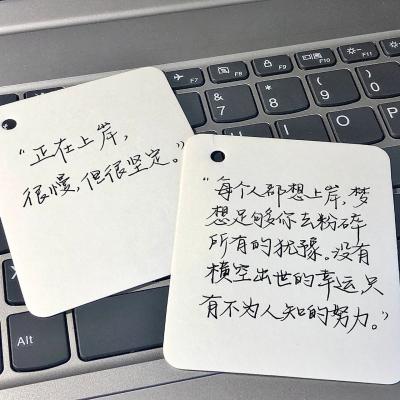 “正在上岸，
很慢，但很坚定。”
“每个人都想上岸，梦
想足够你去粉碎
所有的犹豫。没有
横空出世的幸运，只
有不为人知的努力。”
F7
F8
F9
F10
F11
&
7
*
8
(
9
)
0
U
Alt